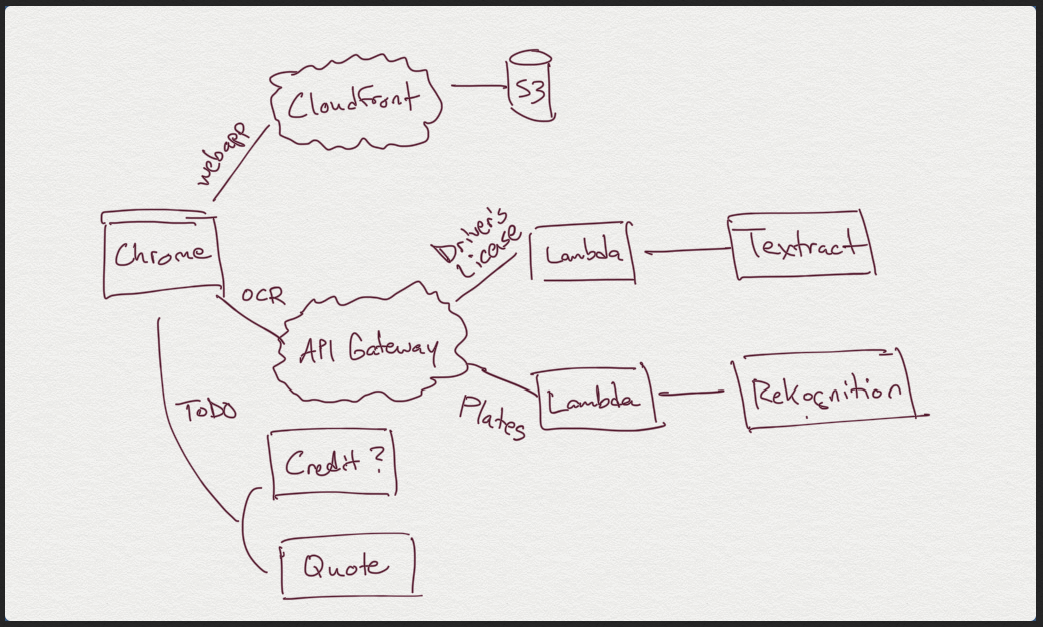 CloudFront
S3
webapp
Chrome
Driver's
License
Lambda
Textract
OCR
API Gateway
Lambda
Rekognition
Plates
ToDO
Credit?
Quote